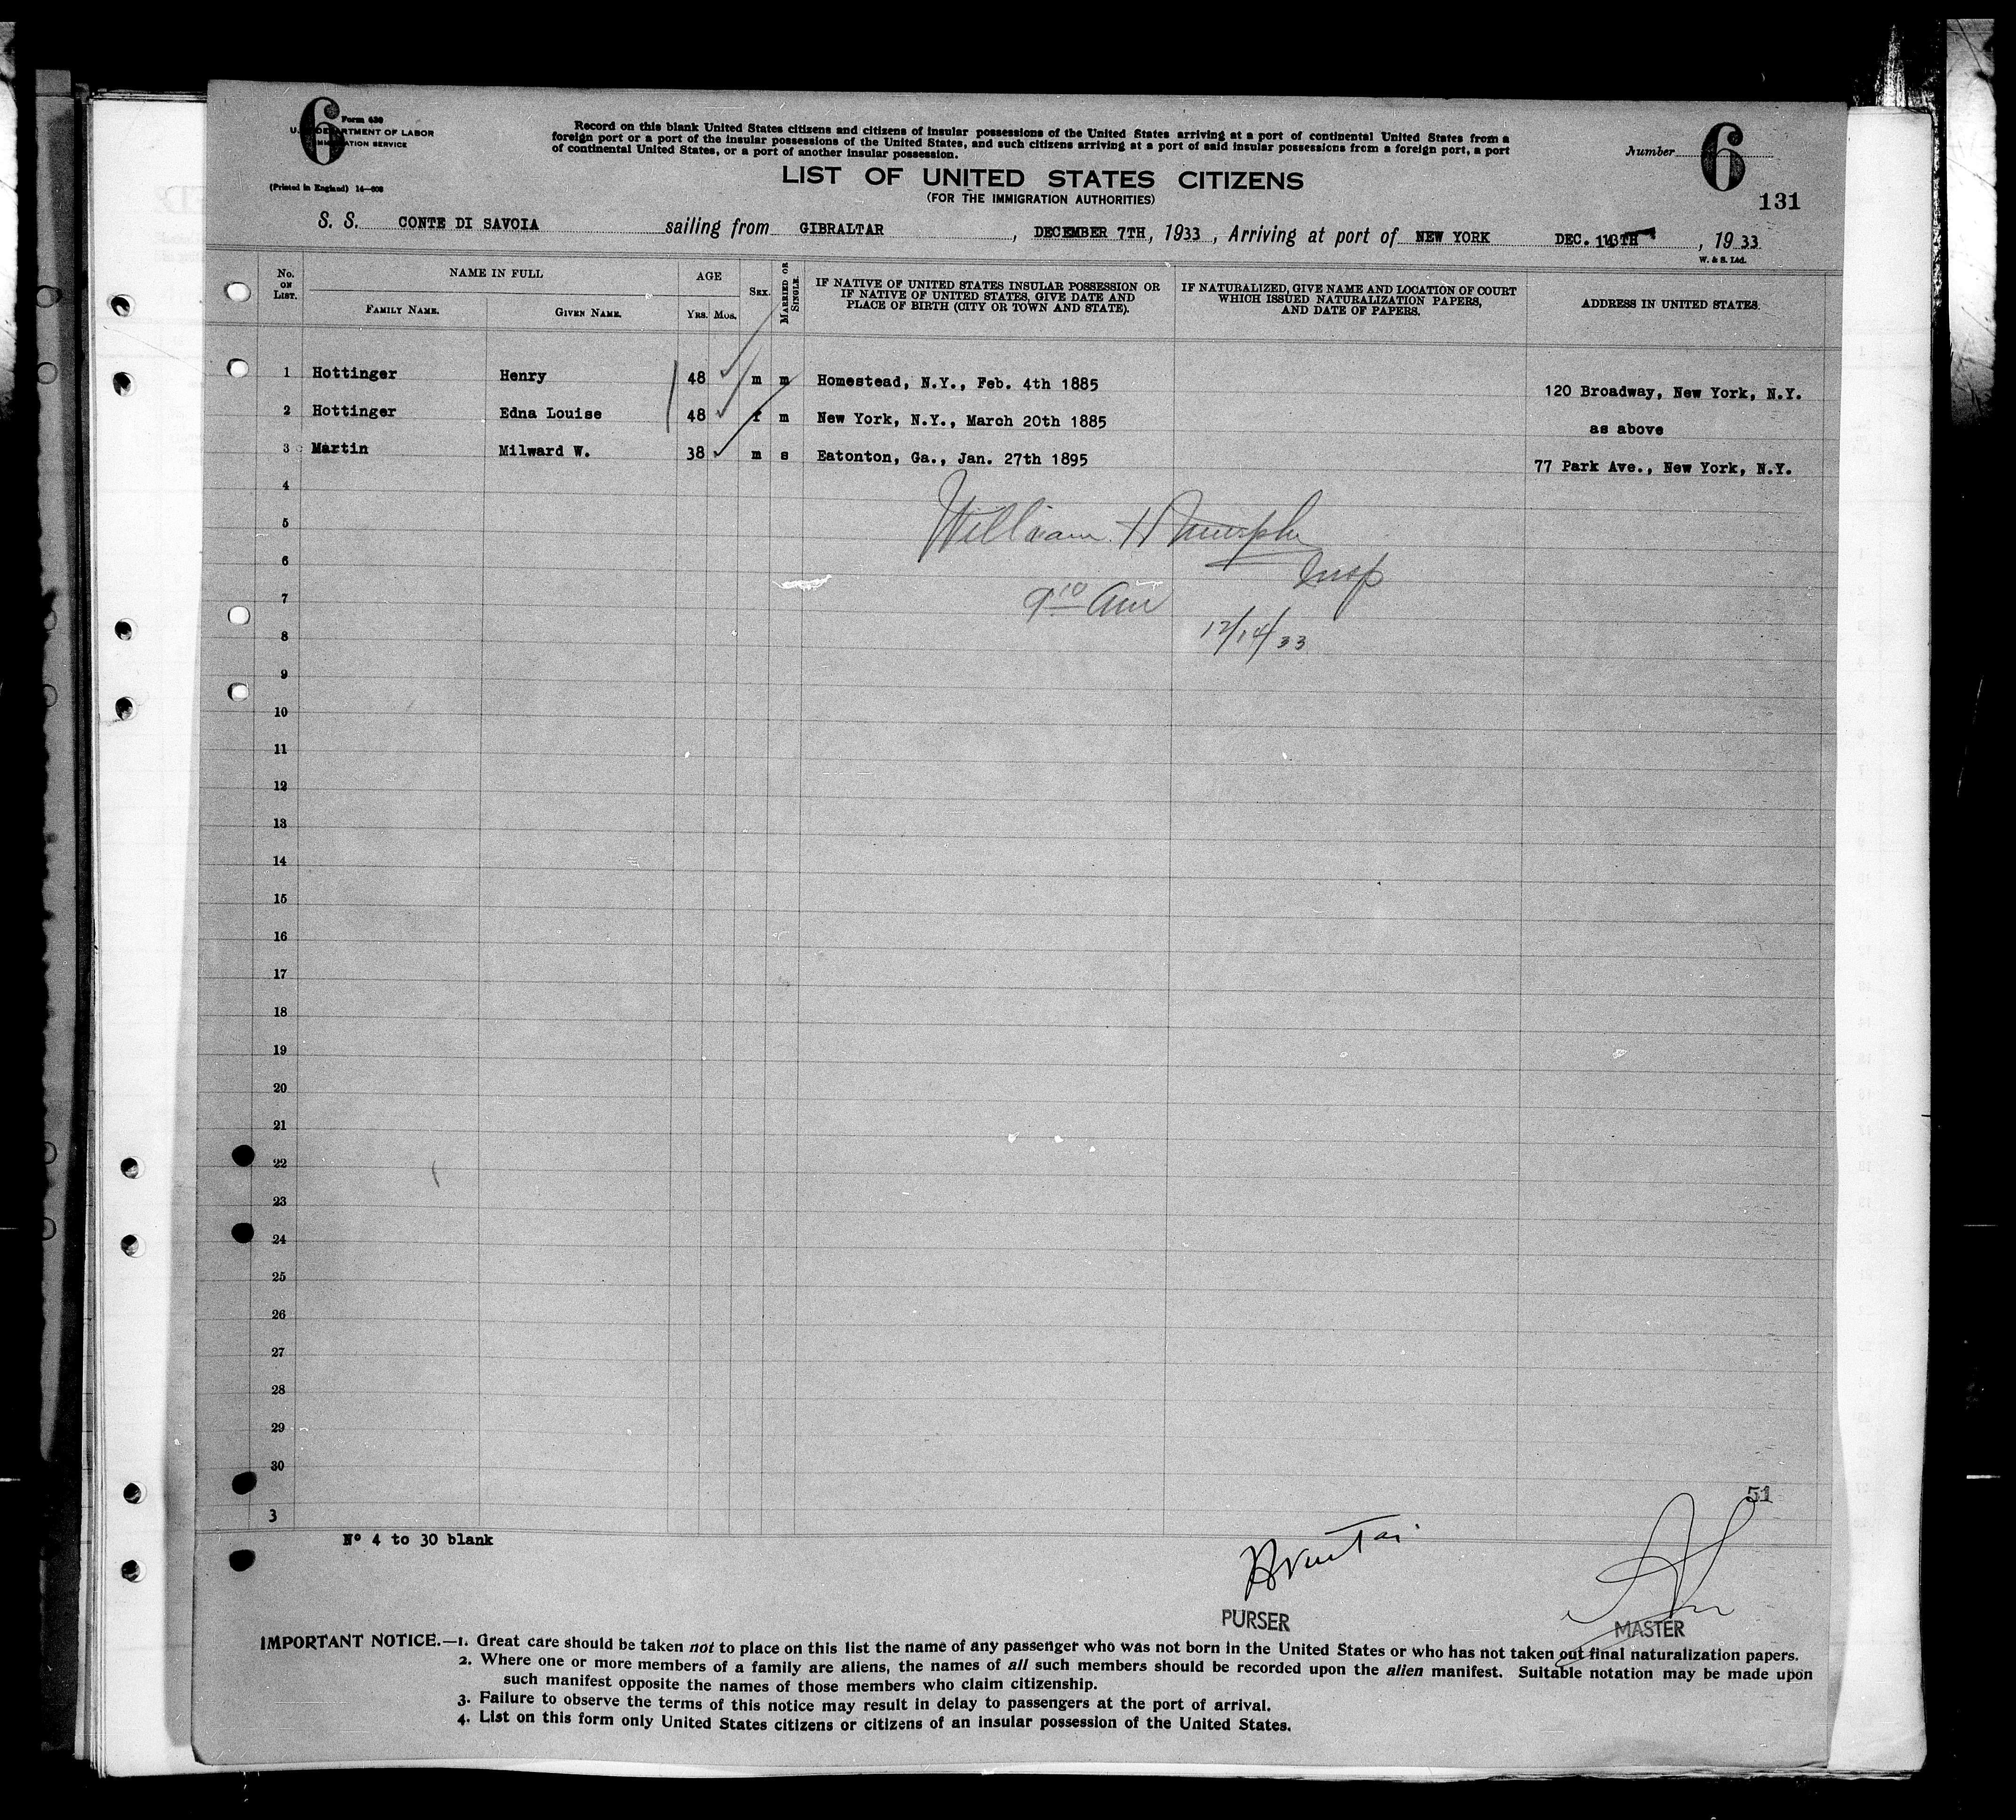 6
Form 630
U.S. DEPARTMENT OF LABOR
IMMIGRATION SERVICE
(Printed in England) 14—608
Record on this blank United States citizens and citizens of insular possessions of the United States arriving at a port of continental United States from a
foreign port or a port of the insular possessions of the United States, and such citizens arriving at a port of said insular possessions from a foreign port, a port
of continental United States, or a port of another insular possession.
Number 6
131
LIST OF UNITED STATES CITIZENS
(FOR THE IMMIGRATION AUTHORITIES)
S. S. CONTE DI SAVOIA sailing from GIBRALTAR, DECEMBER 7TH, 1933, Arriving at port of NEW YORK DEC. 1 TH, 1933
W. & S. Ltd.
No. ON LIST.
NAME IN FULL
FAMILY NAME. GIVEN NAME.
AGE
YRS. MOS.
SEX.
MARRIED OR SINGLE.
IF NATIVE OF UNITED STATES INSULAR POSSESSION OR
IF NATIVE OF UNITED STATES, GIVE DATE AND
PLACE OF BIRTH (CITY OR TOWN AND STATE).
IF NATURALIZED, GIVE NAME AND LOCATION OF COURT
WHICH ISSUED NATURALIZATION PAPERS,
AND DATE OF PAPERS.
ADDRESS IN UNITED STATES.
1 Hottinger Henry 48 m m Homestead, N.Y., Feb. 4th 1885 120 Broadway, New York, N.Y.
2 Hottinger Edna Louise 48 f m New York, N.Y., March 20th 1885 as above
3 Martin Milward W. 38 m s Eatonton, Ga., Jan. 27th 1895 77 Park Ave., New York, N.Y.
4
William H Murphy
5
6
Insp
7
9 10 am
8
12/14/33
9
10
11
12
13
14
15
16
17
18
19
20
21
22
23
24
25
26
27
28
29
30
51
3
Nº 4 to 30 blank
PURSER
MASTER
IMPORTANT NOTICE.—1. Great care should be taken not to place on this list the name of any passenger who was not born in the United States or who has not taken out final naturalization papers.
2. Where one or more members of a family are aliens, the names of all such members should be recorded upon the alien manifest. Suitable notation may be made upon
such manifest opposite the names of those members who claim citizenship.
3. Failure to observe the terms of this notice may result in delay to passengers at the port of arrival.
4. List on this form only United States citizens or citizens of an insular possession of the United States.